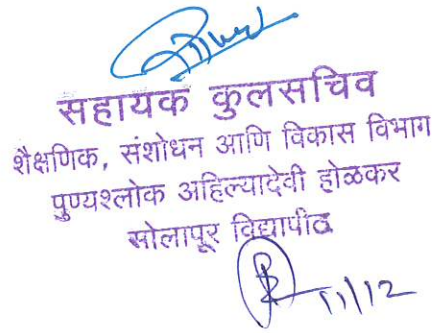 सहायक कुलसचिव
शैक्षणिक, संशोधन आणि विकास विभाग
पुण्यश्लोक अहिल्यादेवी होळकर
सोलापूर विद्यापीठ
11/12